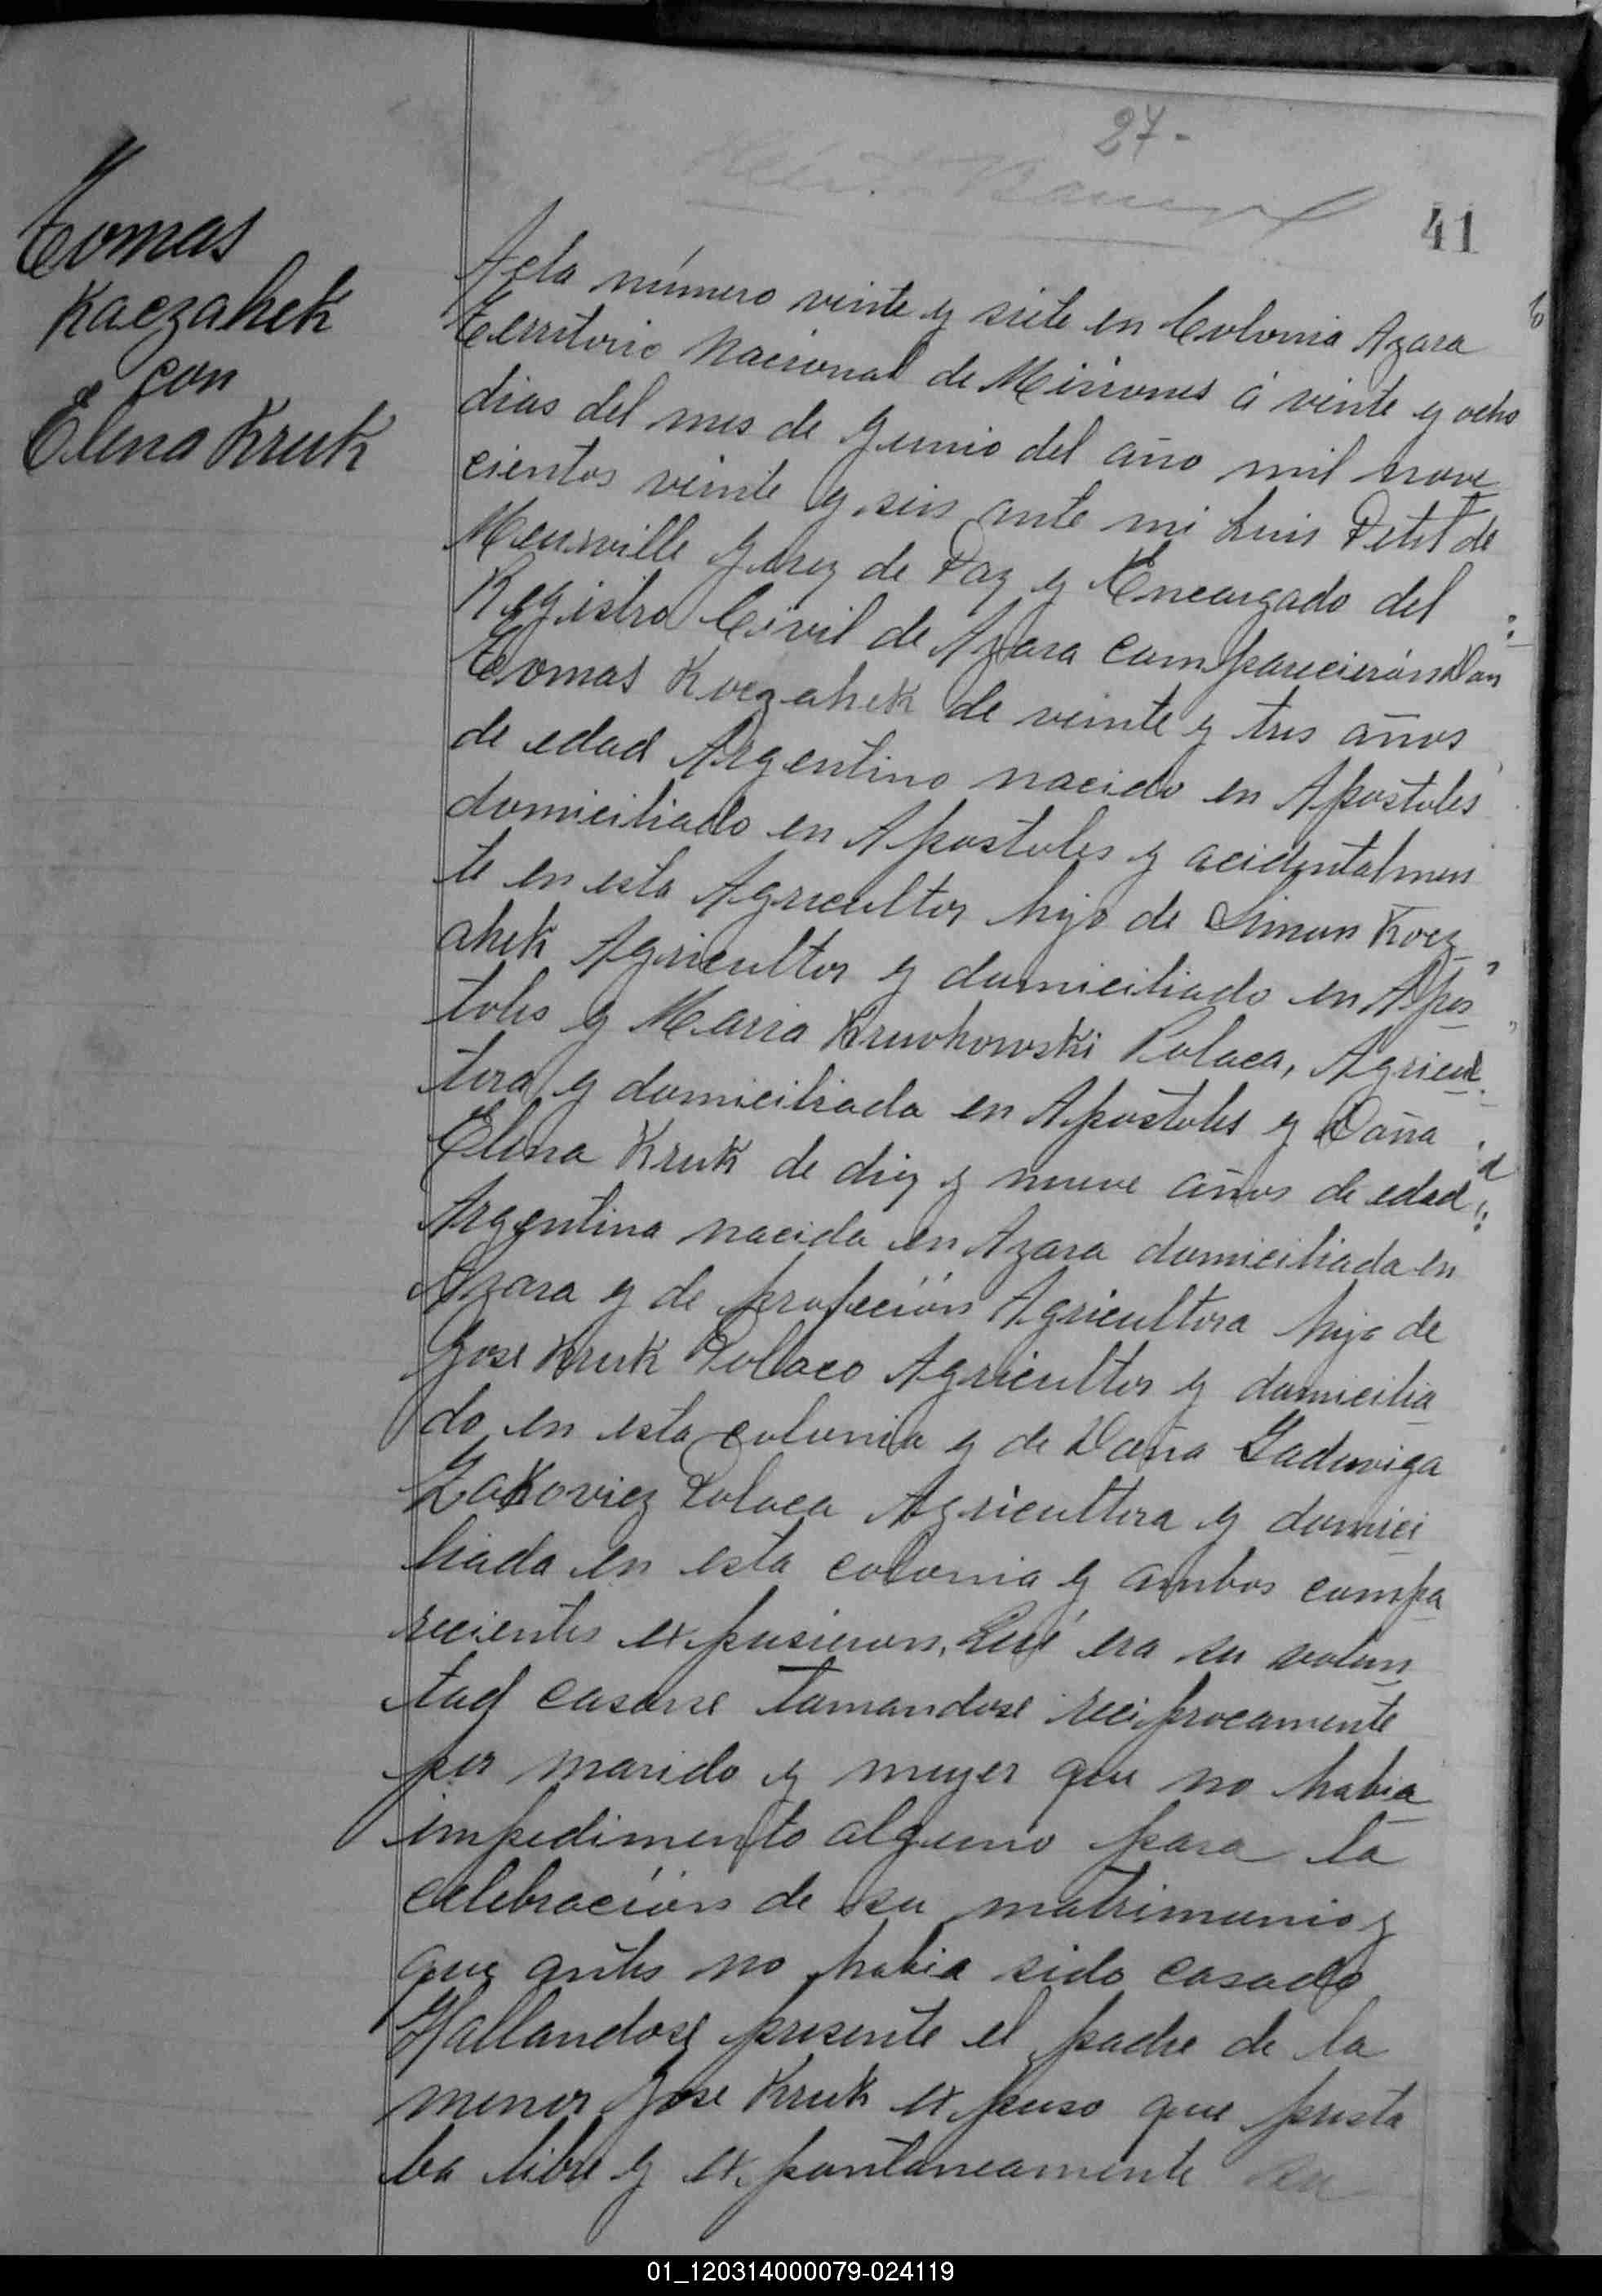 27-
41
Tomas
Kaczahek
con
Elena Kruk
Acta número veinte y siete en Colonia Azara
Territorio Nacional de Misiones á veinte y ocho
dias del mes de Junio del año mil nove
cientos veinte y seis ante mi Luis Petit de
Meurville Juez de Paz y Encargado del
Registro Civil de Azara comparecierón Don
Tomas Koczahek de veinte y tres años
de edad Argentino nacido en Apostoles
domiciliado en Apostoles y acidentalmen
te en esta Agricultor hijo de Simon Kocz
ahek Agricultor y domiciliado en Apos
toles y Maria Kruvkowski Polaca, Agricul
tora y domiciliada en Apostoles y Doña
Elena Kruk de diez y nueve años de edad
Argentina nacida en Azara domiciliada en
Azara y de profeción Agricultora hija de
Jose Kruk Polaco Agricultor y domicilia
do en esta colonia y de Doña Gaduviga
Zakoviez Polaca Agricultora y domici
liada en esta colonia y ambos compa
recientes expusieron, Qué era su volun
tad casarse tomandose reciprocamente
por marido y mujer que no habia
impedimento alguno para la
celebración de su matrimonio y
que antes no habia sido casado
Hallandose presente el padre de la
menor Jose Kruk expuso que presta
ba libre y expontaneamente su
01_120314000079-024119